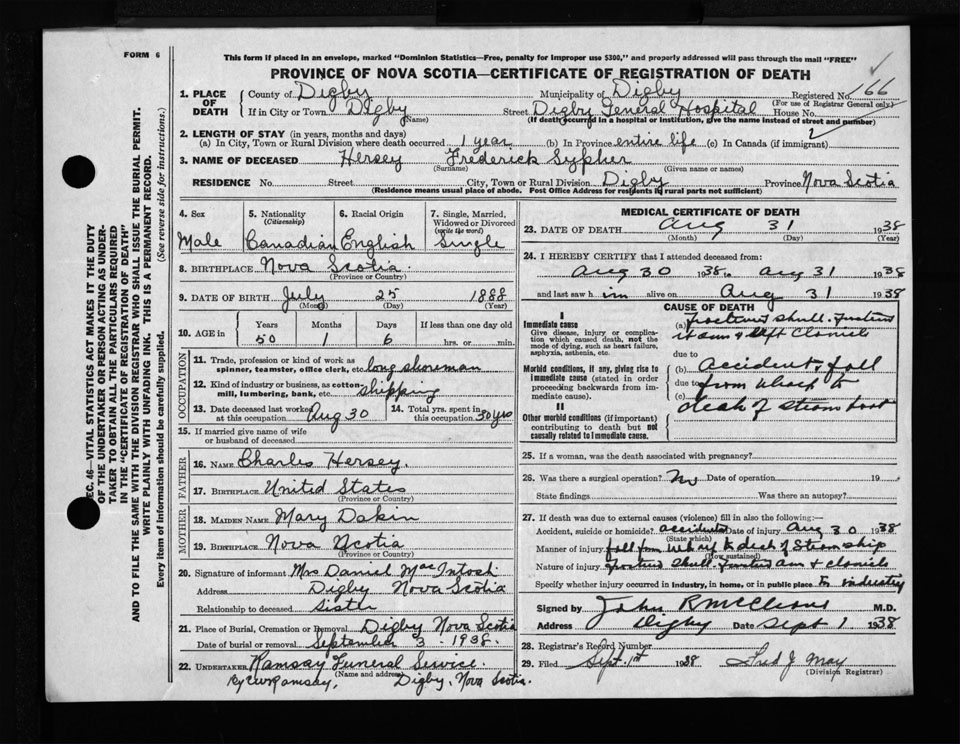 FORM 6
This form if placed in an envelope, marked "Dominion Statistics—Free, penalty for improper use $300," and properly addressed will pass through the mail "FREE"
PROVINCE OF NOVA SCOTIA—CERTIFICATE OF REGISTRATION OF DEATH
1. PLACE OF DEATH County of Digby Municipality of Digby Registered No. 166
(For use of Registrar General only)
If in City or Town Digby Street Digby General Hospital House No.
(Name) (If death occurred in a hospital or institution, give the name instead of street and number)
2. LENGTH OF STAY (in years, months and days)
(a) In City, Town or Rural Division where death occurred 1 year (b) In Province entire life (c) In Canada (if immigrant)
3. NAME OF DECEASED Hersey Frederick Sypher
(Surname) (Given name or names)
RESIDENCE No. Street City, Town or Rural Division Digby Province Nova Scotia
(Residence means usual place of abode. Post Office Address for residents in rural parts not sufficient)
4. Sex 5. Nationality (Citizenship) 6. Racial Origin 7. Single, Married, Widowed or Divorced (write the word)
Male Canadian English Single
8. BIRTHPLACE Nova Scotia.
(Province or Country)
9. DATE OF BIRTH July 25 1888
(Month) (Day) (Year)
10. AGE in Years Months Days If less than one day old
50 1 6 hrs. or min.
OCCUPATION
11. Trade, profession or kind of work as spinner, teamster, office clerk, etc. long shoreman
12. Kind of industry or business, as cotton-mill, lumbering, bank, etc. shipping
13. Date deceased last worked at this occupation Aug 30 14. Total yrs. spent in this occupation 30 yrs
15. If married give name of wife or husband of deceased
FATHER
16. NAME Charles Hersey.
17. BIRTHPLACE United States
(Province or Country)
MOTHER
18. MAIDEN NAME Mary Dakin
19. BIRTHPLACE Nova Scotia
(Province or Country)
20. Signature of informant Mrs Daniel MacIntosh
Address Digby Nova Scotia
Relationship to deceased Sister
21. Place of Burial, Cremation or Removal Digby Nova Scotia
Date of burial or removal September 3 - 1938.
22. UNDERTAKER Ramsay Funeral Service.
(Name and address)
Ramsay, Digby, Nova Scotia.
MEDICAL CERTIFICATE OF DEATH
23. DATE OF DEATH Aug 31 1938
(Month) (Day) (Year)
24. I HEREBY CERTIFY that I attended deceased from:
Aug 30 1938 to Aug 31 1938
and last saw h im alive on Aug 31 1938
CAUSE OF DEATH
I
Immediate cause
Give disease, injury or complication which caused death, not the mode of dying, such as heart failure, asphyxia, asthenia, etc.
(a) fractured skull.
due to
Morbid conditions, if any, giving rise to immediate cause (stated in order proceeding backwards from immediate cause).
(b) Accident fall
due to
(c) from wharf to
deck of steam boat
II
Other morbid conditions (if important) contributing to death but not causally related to immediate cause.
25. If a woman, was the death associated with pregnancy?
26. Was there a surgical operation? No Date of operation 19
State findings Was there an autopsy?
27. If death was due to external causes (violence) fill in also the following:—
Accident, suicide or homicide? accident Date of injury Aug 30 1938
(State which)
Manner of injury fall from wharf to deck of Steam ship
(How sustained)
Nature of injury fractured skull. arm &
Specify whether injury occurred in industry, in home, or in public place In industry
Signed by John M.D.
Address Digby Date Sept 1 1938
28. Registrar's Record Number
29. Filed Sept. 1st 1938 Fred J May
(Division Registrar)
SEC. 46—VITAL STATISTICS ACT MAKES IT THE DUTY
OF THE UNDERTAKER OR PERSON ACTING AS UNDER-
TAKER TO OBTAIN ALL THE PARTICULARS REQUIRED
IN THE "CERTIFICATE OF REGISTRATION OF DEATH"
AND TO FILE THE SAME WITH THE DIVISION REGISTRAR WHO SHALL ISSUE THE BURIAL PERMIT.
WRITE PLAINLY WITH UNFADING INK. THIS IS A PERMANENT RECORD.
Every item of information should be carefully supplied. (See reverse side for instructions.)